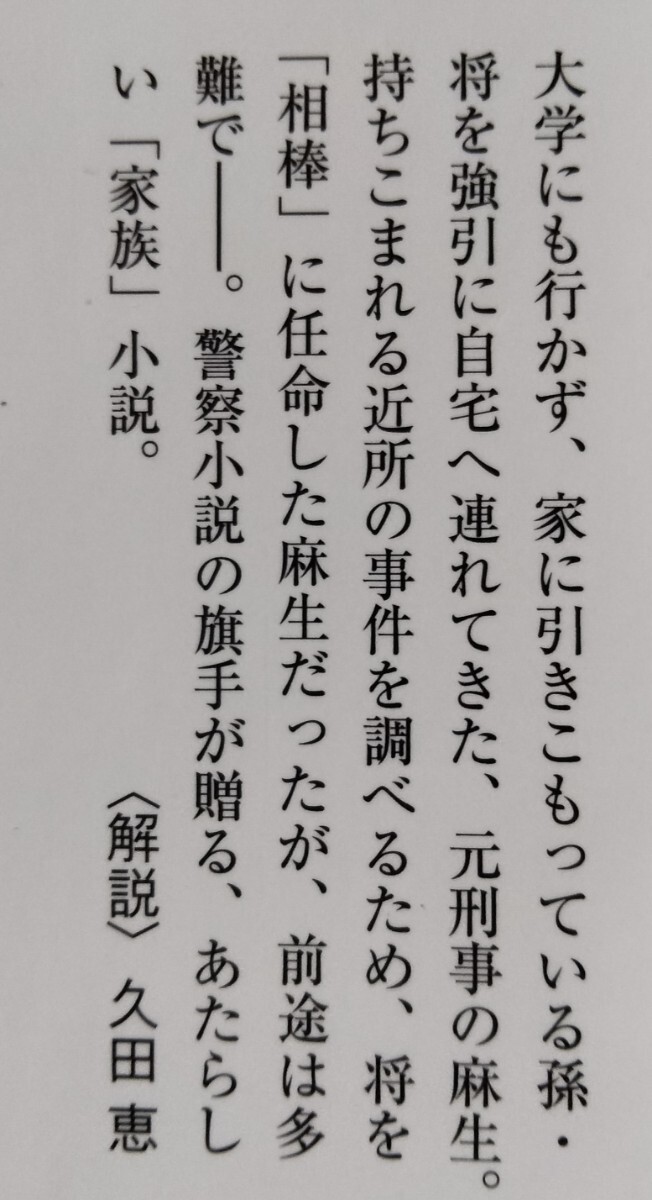 大学にも行かず、家に引きこもっている孫・
将を強引に自宅へ連れてきた、元刑事の麻生。
持ちこまれる近所の事件を調べるため、将を
「相棒」に任命した麻生だったが、前途は多
難で――。警察小説の旗手が贈る、あたらし
い「家族」小説。　〈解説〉久田 恵